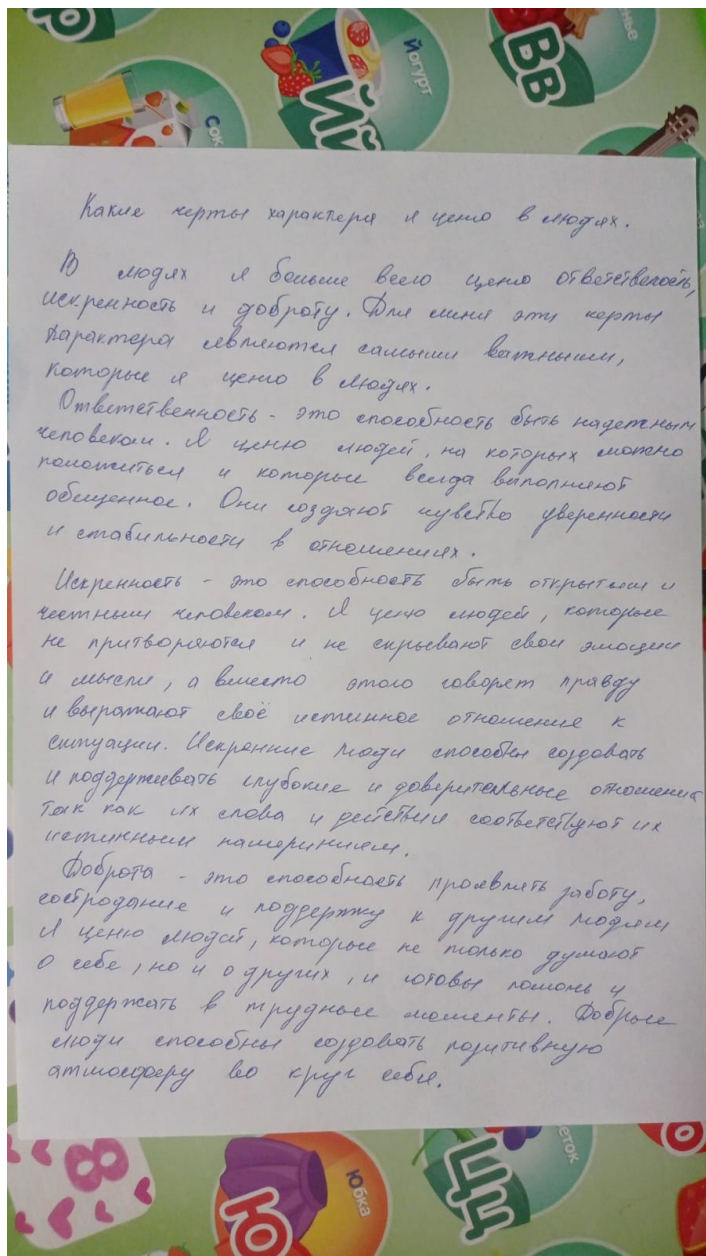 Йогурт
Йй
Вв
Сок
Какие черты характера я ценю в людях.
В людях я больше всего ценю ответственость,
искренность и доброту. Для меня эти черты
характера являются самыми важными,
которые я ценю в людях.
Ответственность - это способность быть надежным
человеком. Я ценю людей, на которых можно
положиться и которые всегда выполняют
обещенное. Они создают чувство уверенности
и стабильности в отношениях.
Искренность - это способность быть открытым и
честным человеком. Я ценю людей, которые
не притворяются и не скрывают свои эмоции
и мысли, а вместо этого говорят правду
и выражают своё истинное отношение к
ситуации. Искренние люди способны создовать
и поддерживать глубокие и доверительные отношения
так как их слова и действия соответствуют их
истинным намериниям.
Доброта - это способность проявлять заботу,
состродание и поддержку к другим людям
Я ценю людей, которые не только думают
о себе, но и о других, и готовы помочь и
поддержать в трудные моменты. Добрые
люди способны создовать позитивную
атмосферу во круг себя.
8
Юбка
Ю
Цц